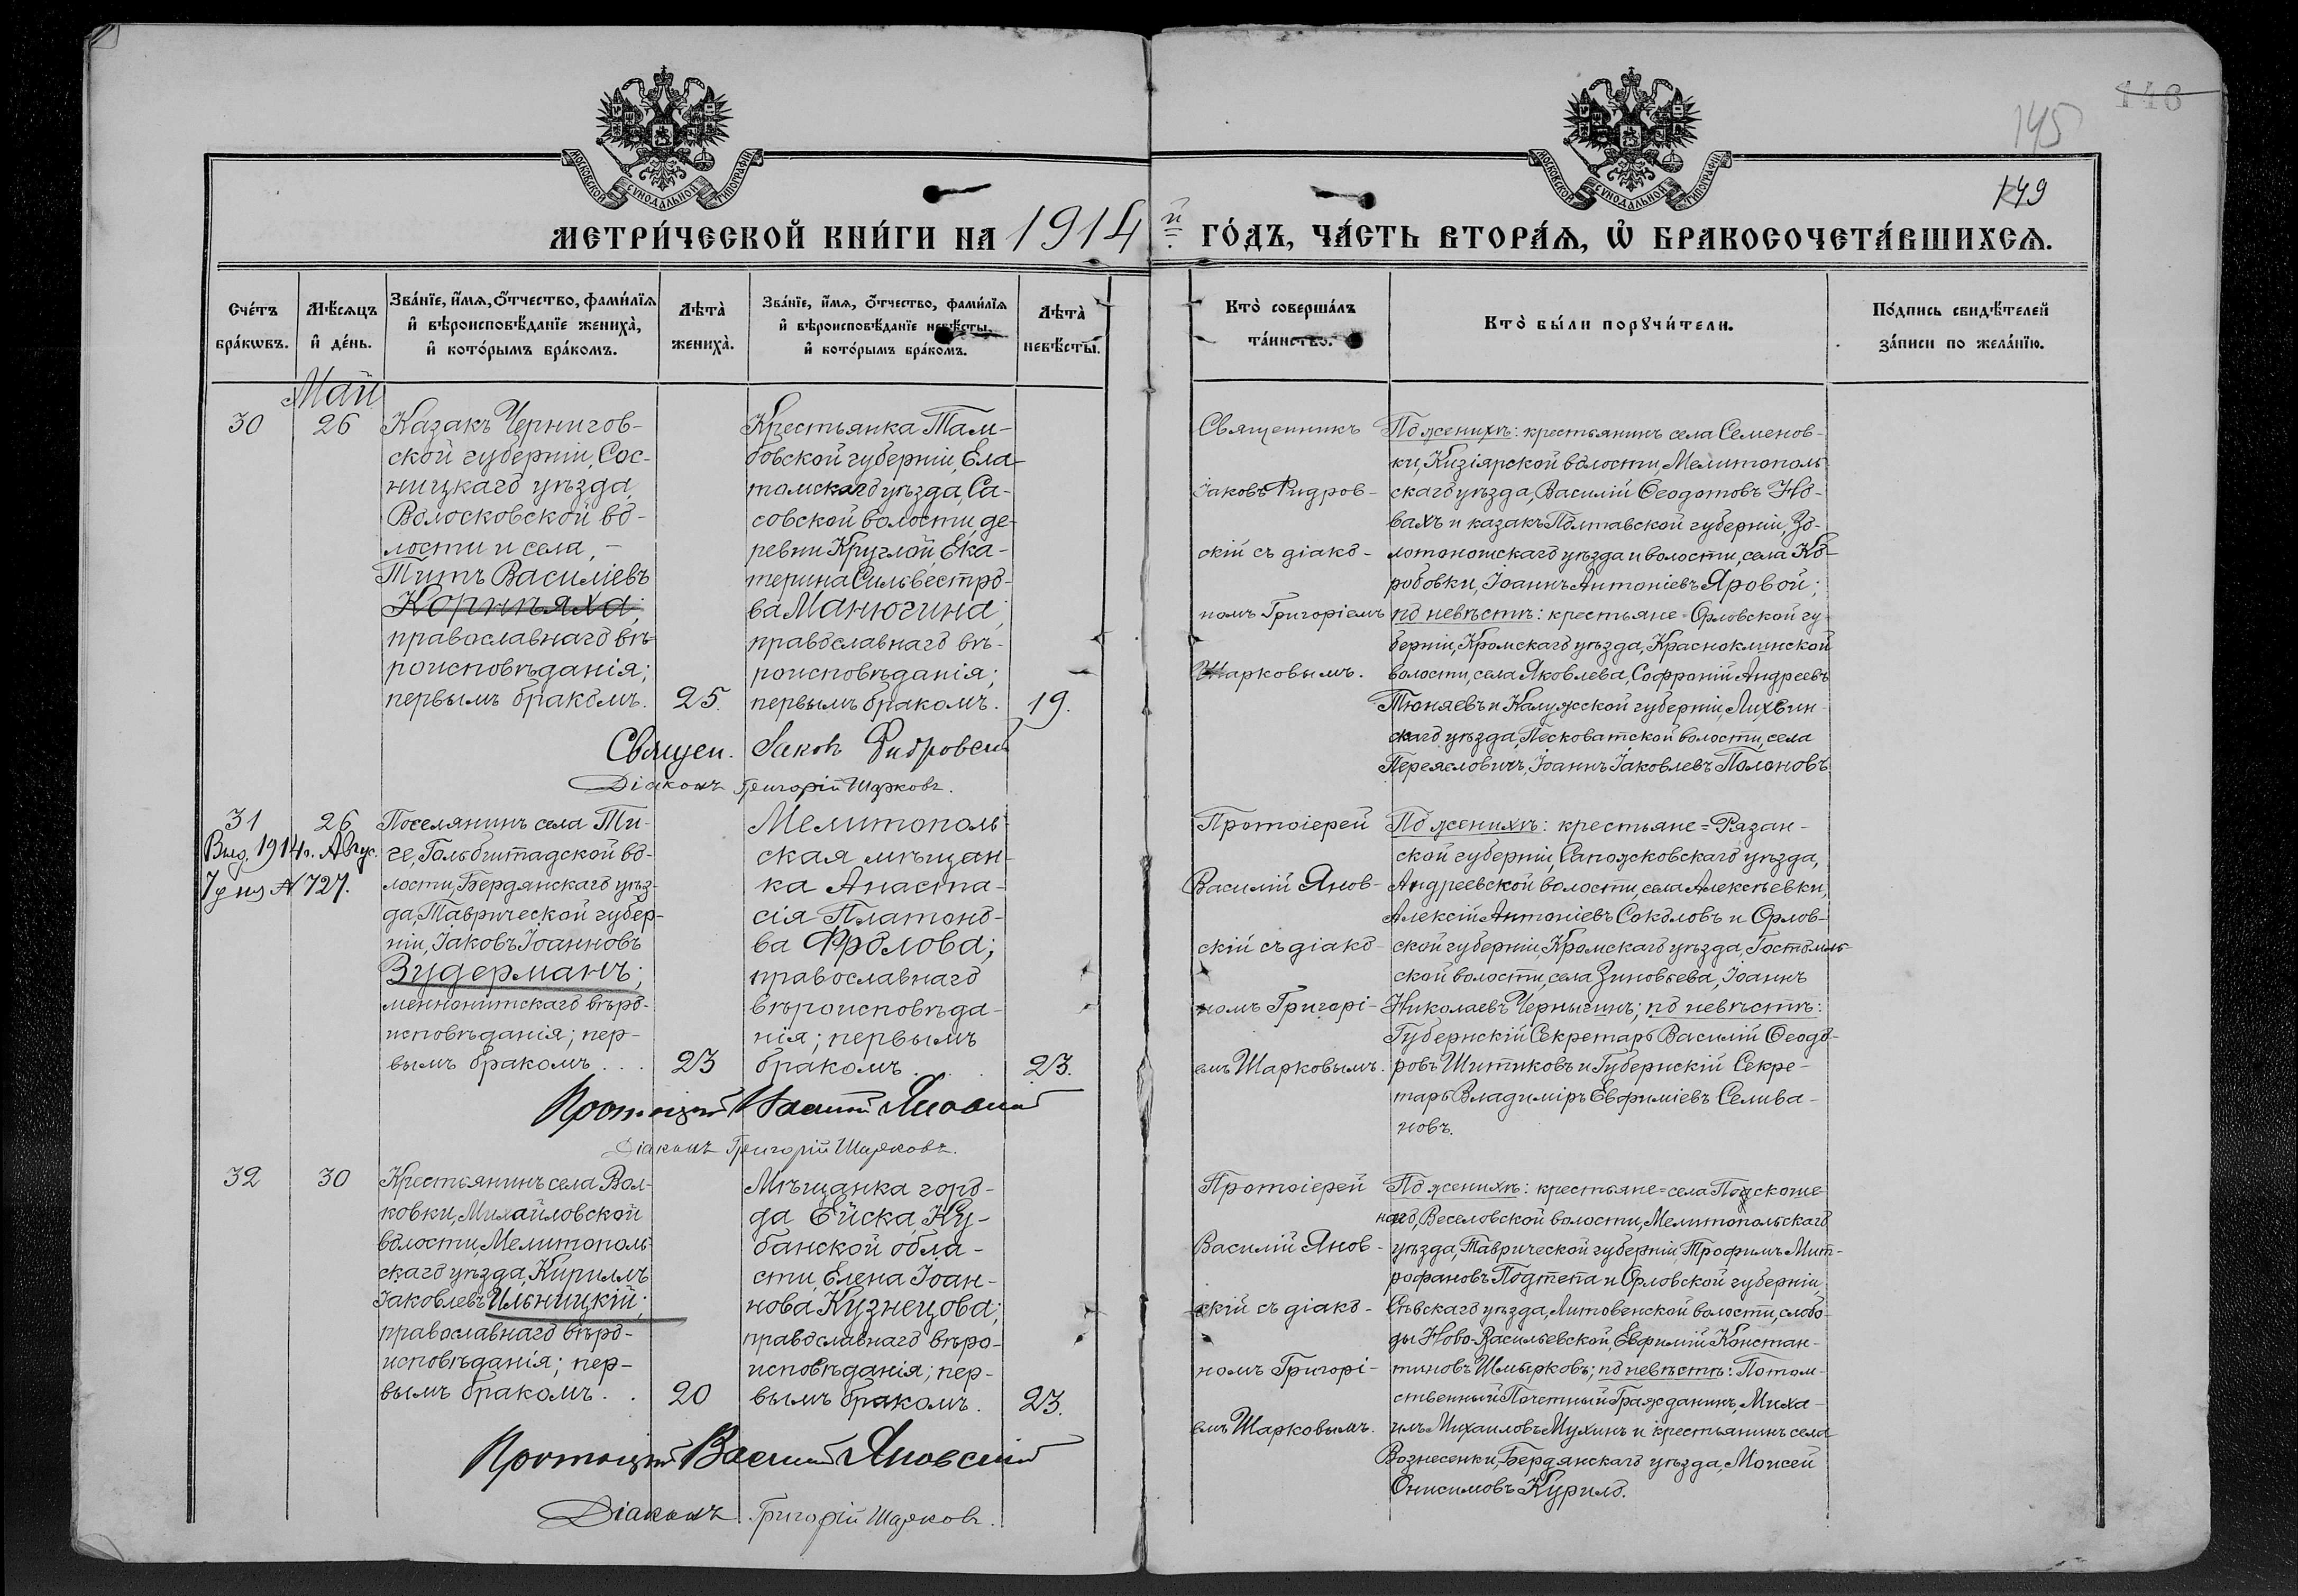 146
145
149
МОСКОВСКОЙ СУНОДАЛЬНОЙ ТИПОГРАФІИ
МОСКОВСКОЙ СУНОДАЛЬНОЙ ТИПОГРАФІИ
МЕТРИ́ЧЕСКОЙ КНИ́ГИ НА 1914 й ГО́ДЪ, ЧА́СТЬ ВТОРА́Я, Ѽ БРАКОСОЧЕТА́ВШИХСЯ.
Сче́тъ
бра́кѡвъ.
Мѣ́сяцъ
и҆ де́нь.
Зва́нїе, и҆́мя, ѻ҆́тчество, фами́лїя
и҆ вѣроисповѣ́данїе жениха̀,
и҆ кото́рымъ бра́комъ.
Лѣ́та̀
жениха̀.
Зва́нїе, и҆́мя, ѻ҆́тчество, фами́лїя
и҆ вѣроисповѣ́данїе невѣ́сты,
и҆ кото́рымъ бра́комъ.
Лѣ́та̀
невѣ́сты.
Кто̀ соверша́лъ
та́инство.
Кто̀ бы́ли порꙋчи́тели.
По́дпись свидѣ́телей
за́писи по жела́нїю.
Май
30
26
Казакъ Чернигов-
ской губерніи, Сос-
ницкаго уѣзда,
Волосковской во-
лости и села, -
Титъ Василіевъ
Корнпяха;
православнаго вѣ-
роисповѣданія;
первымъ бракомъ.
25.
Крестьянка Там-
бовской губерніи, Ела-
томскаго уѣзда, Са-
совской волости, де-
ревни Круглой, Ека-
терина Сильвестро-
ва Манючина;
православнаго вѣ-
роисповѣданія;
первымъ бракомъ.
19.
Священникъ
Іаковъ Ридров-
скій съ діако-
номъ Григоріемъ
Шарковымъ.
По женихѣ: крестьянинъ села Семенов-
ки, Кизіярской волости, Мелитополь-
скаго уѣзда, Василій Ѳеодотовъ Но-
вахъ и казакъ Полтавской губерніи, Зо-
лотоношскаго уѣзда и волости, села Ко-
робовки, Іоаннъ Антоніевъ Яровой;
по невѣстѣ: крестьяне = Орловской гу-
берніи, Кромскаго уѣзда, Красноклинской
волости, села Яковлева, Софроній Андреевъ
Тюняевъ и Калужской губерніи, Лихвин-
скаго уѣзда, Песковатской волости, села
Переясловичъ, Іоаннъ Іаковлевъ Полоновъ.
Священ. Іаковъ Ридровскій
Діаконъ Григорій Шарковъ.
31
26
Выд. 1914 г. Авгус.
7 дня № 727.
Поселянинъ села Ти-
ге, Гальбштадской во-
лости, Бердянскаго уѣз-
да, Таврической губер-
ніи, Іаковъ Іоанновъ
Зудерманъ;
меннонитскаго вѣро-
исповѣданія; пер-
вымъ бракомъ . . .
23
Мелитополь-
ская мѣщан-
ка Анаста-
сія Платоно-
ва Фролова;
православнаго
вѣроисповѣда-
нія; первымъ
бракомъ . . .
23.
Протоіерей
Василій Янов-
скій съ діако-
номъ Григорі-
емъ Шарковымъ.
По женихѣ: крестьяне = Рязан-
ской губерніи, Сапожсковскаго уѣзда,
Андреевской волости, села Алексѣевки,
Алексій Антоніевъ Соколовъ и Орлов-
ской губерніи, Кромскаго уѣзда, Гостомль-
ской волости, села Зиновьева, Іоаннъ
Николаевъ Чернычинъ; по невѣстѣ:
Губернскій Секретарь Василій Ѳеодо-
ровъ Шитиковъ и Губернскій Секре-
тарь Владиміръ Евфиміевъ Селива-
новъ.
Протоіерей Василій Яновскій
Діаконъ Григорій Шарковъ.
32
30
Крестьянинъ села Вол-
ковки, Михайловской
волости, Мелитополь-
скаго уѣзда, Кириллъ
Іаковлевъ Ильницкій;
православнаго вѣро-
исповѣданія; пер-
вымъ бракомъ . .
20
Мѣщанка горо-
да Ейска, Ку-
банской обла-
сти, Елена Іоан-
нова Кузнецова;
православнаго вѣро-
исповѣданія; пер-
вымъ бракомъ.
23.
Протоіерей
Василій Янов-
скій съ діако-
номъ Григорі-
емъ Шарковымъ.
По женихѣ: крестьяне = села
наго, Веселовской волости, Мелитопольскаго
уѣзда, Таврической губерніи, Трофимъ Мит-
рофановъ Подтепа и Орловской губерніи,
Сѣвскаго уѣзда, Литовенской волости, слобо-
ды Ново-Васильевской, Евфимій Констан-
тиновъ Шмырковъ; по невѣстѣ: Потом-
ственный Почетный Гражданинъ, Миха-
илъ Михаиловъ Мухинъ и крестьянинъ села
Вознесенки, Бердянскаго уѣзда, Моисей
Онисимовъ Курило.
Протоіерей Василій Яновскій
Діаконъ Григорій Шарковъ.